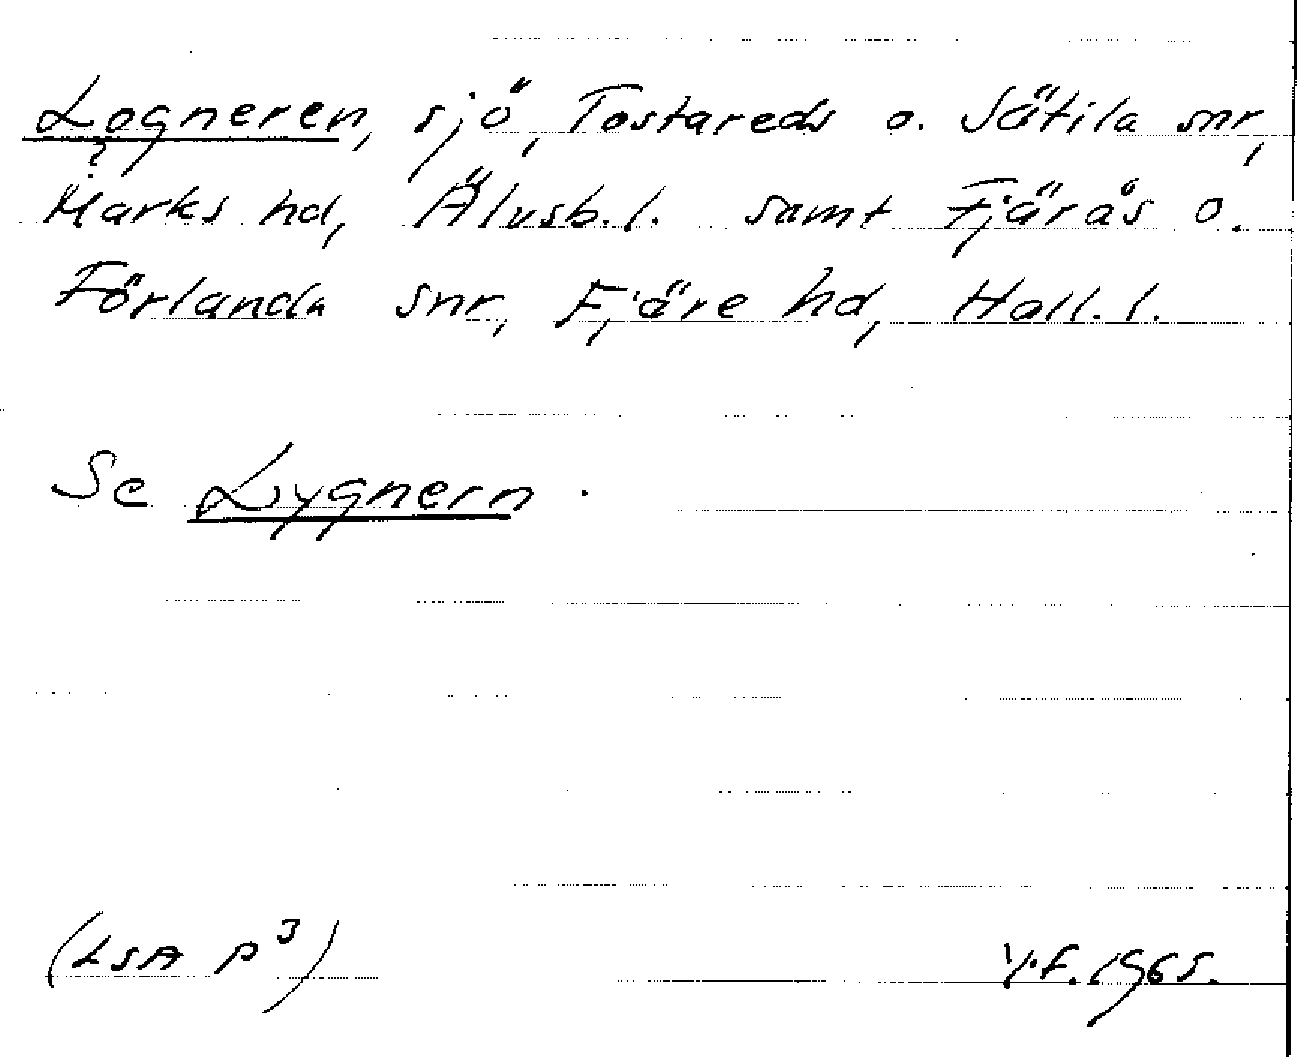 Logneren, sjö, Tostareds o. Sätila snr,
?
Marks hd, Älvsb. l. samt Fjärås o.
Förlanda snr, Fjäre hd, Hall. l.
Se Lygnern.
(LSA P3)
1965.